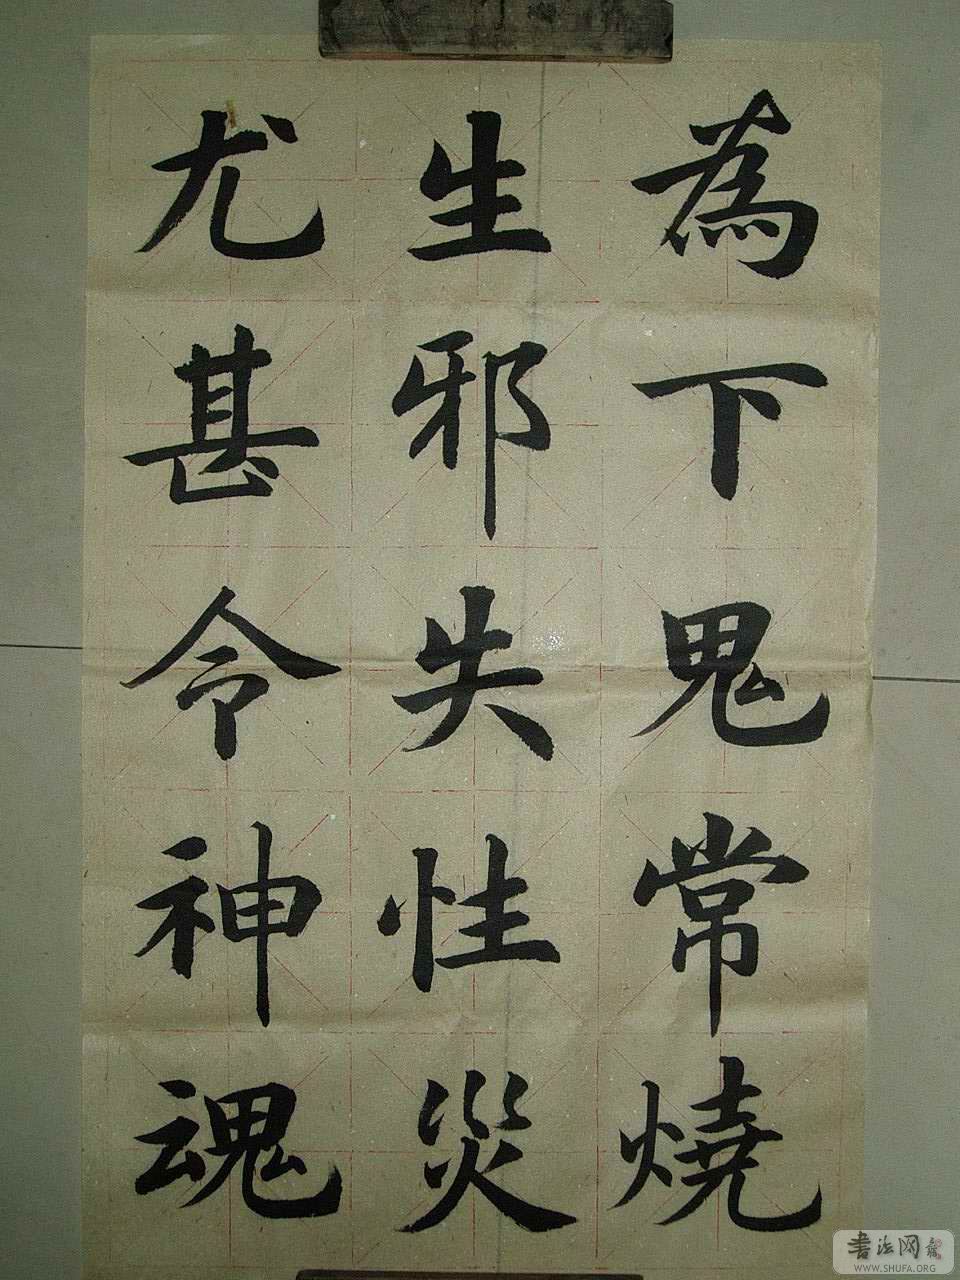 為下鬼常燒
生邪失性災
尤甚令神魂
書法网
WWW.SHUFA.ORG